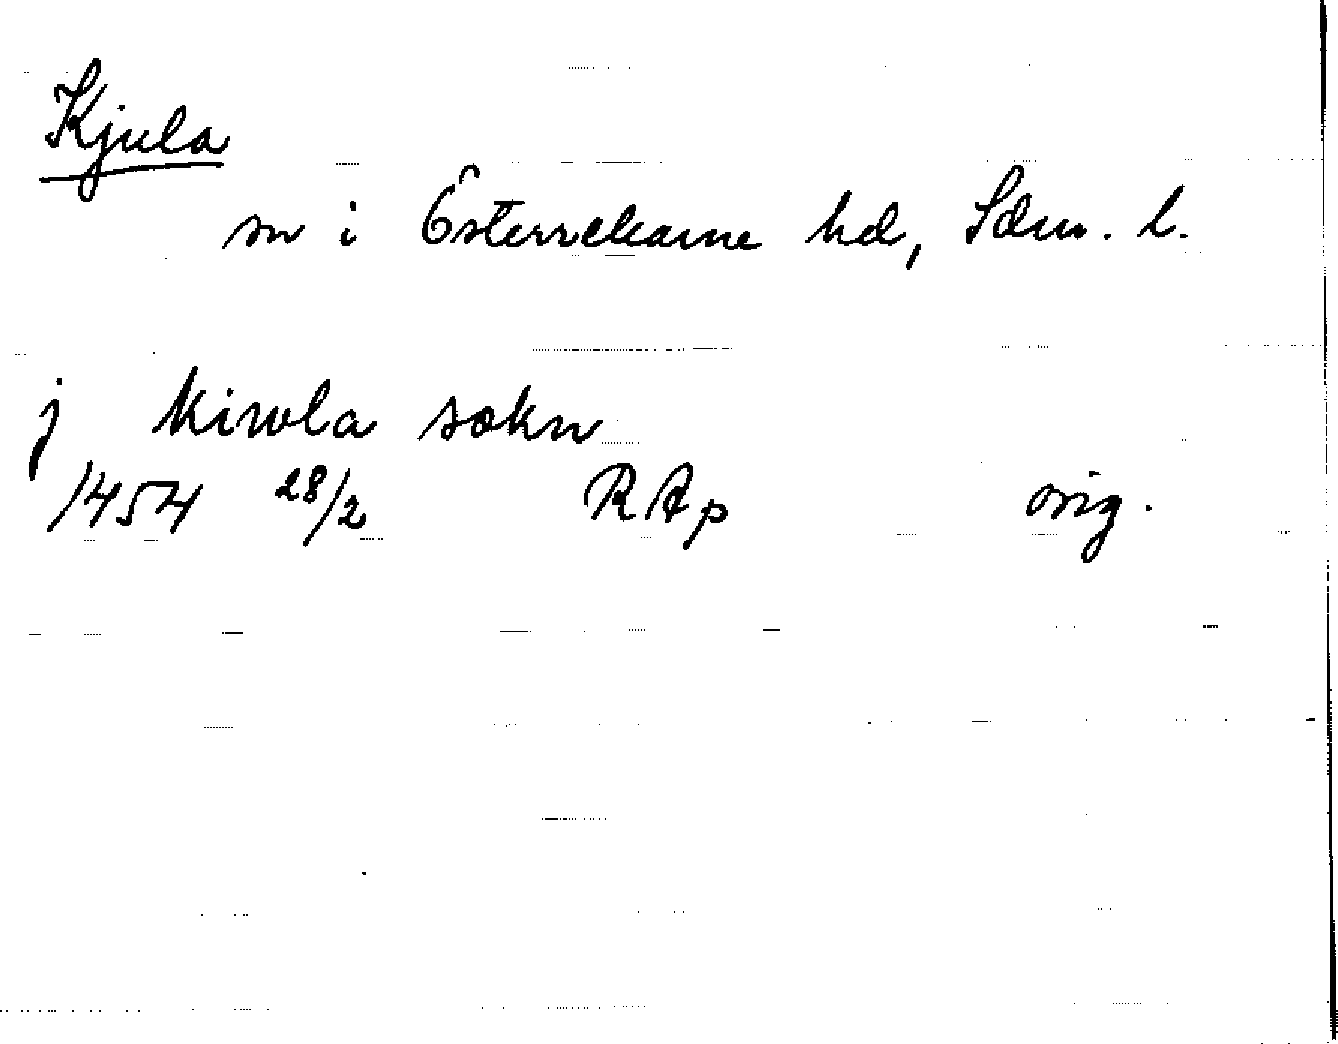 Kjula
sn i Österrekarne hd, Sdm. l.
j kiwla sokn
1454 28/2 RAp orig.